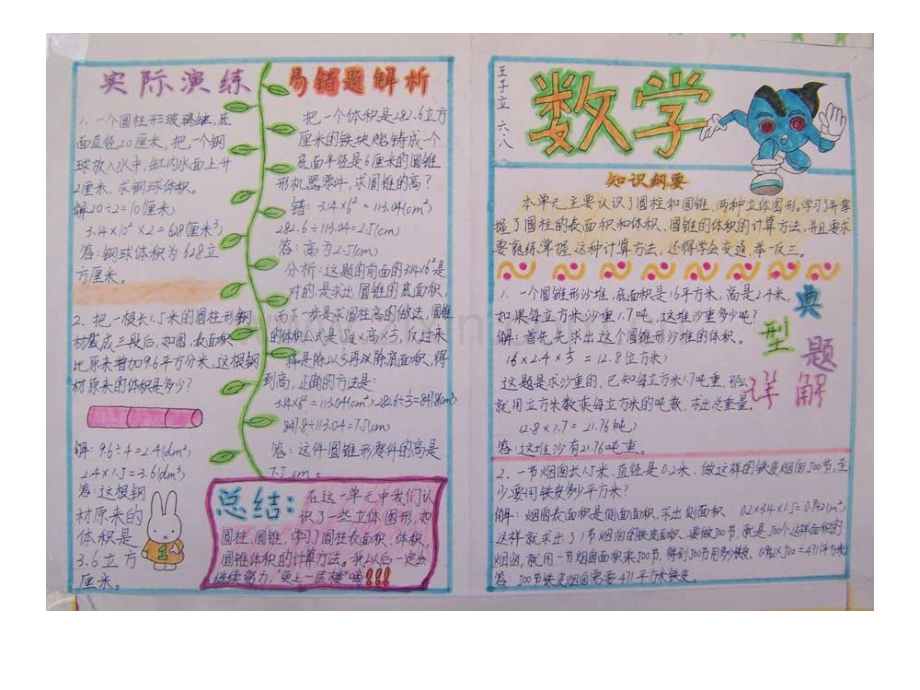 实际演练
1. 一个圆柱形玻璃缸, 底
面直径20厘米, 把一个钢
球放入水中, 缸内水面上升
2厘米, 求钢球体积。
解20÷2=10(厘米)
3.14×10²×2=628(厘米³)
答: 钢球体积为628立
方厘米。
2. 把一根长1.5米的圆柱形钢
材截成三段后, 如图, 表面积
比原来增加9.6平方分米, 这根钢
材原来的体积是多少?
解: 9.6÷4=2.4(dm²)
2.4×1.5=3.6(dm³)
答: 这根钢
材原来的
体积是
3.6立方
厘米。
易错题解析
把一个体积是282.6立方
厘米的铁块熔铸成一个
底面半径是6厘米的圆锥
形机器零件, 求圆锥的高?
错: 3.14×6²=113.04(cm²)
282.6÷113.04=2.5(cm)
答: 高为2.5(cm)
分析: 这题的前面的3.14×6²是
对的, 是求出圆锥的底面积,
而下一步是求圆锥高的做法, 圆锥
的体积公式是
到高, 正确的方法是:
3.14×6²=113.04(cm²)
847.8÷113.04=7.5(cm)
答: 这件圆锥形零件的高是
7.5cm。
总结:
在这一单元中我们认
识了一些立体图形, 如
圆柱, 圆锥, 学习了圆柱表面积、体积,
圆锥体积的计算方法。我以后一定会
继续努力, "更上一层楼"嘀!!!
王子立 六.八
数学
知识纲要
本单元主要认识了圆柱和圆锥, 两种立体图形, 学习并掌
握了圆柱的表面积和体积、圆锥的体积的计算方法, 并且要求
要熟练掌握这种计算方法, 还得学会变通, 举一反三。
典型题详解
1. 一个圆锥形沙堆, 底面积是16平方米, 高是2.4米,
如果每立方米沙重1.7吨, 这堆沙重多少吨?
解: 首先要求出这个圆锥形沙堆的体积。
16×2.4×⅓=12.8(立方米)
这题是求沙重的, 已知每立方米1.7吨重, 那么
就用立方米数乘每立方米的吨数, 求出总重量。
12.8×1.7=21.76(吨)
答: 这堆沙有21.76吨重。
2. 一节烟囱长1.5米, 直径是0.2米, 做这样的铁皮烟囱500节, 至
少要用铁皮多少平方米?
解: 烟囱表面积是侧面面积, 求出侧面积 0.2×3.14×1.5=0.942(m²)
这样就求出了1节烟囱的铁皮面积, 要做500节, 就是500个这样面积的
烟囱, 就用一节烟囱面积乘500节, 得到500节用多少铁皮, 0.942×500=471(平方米)
答: 500节铁皮烟囱需要471平方米铁皮。